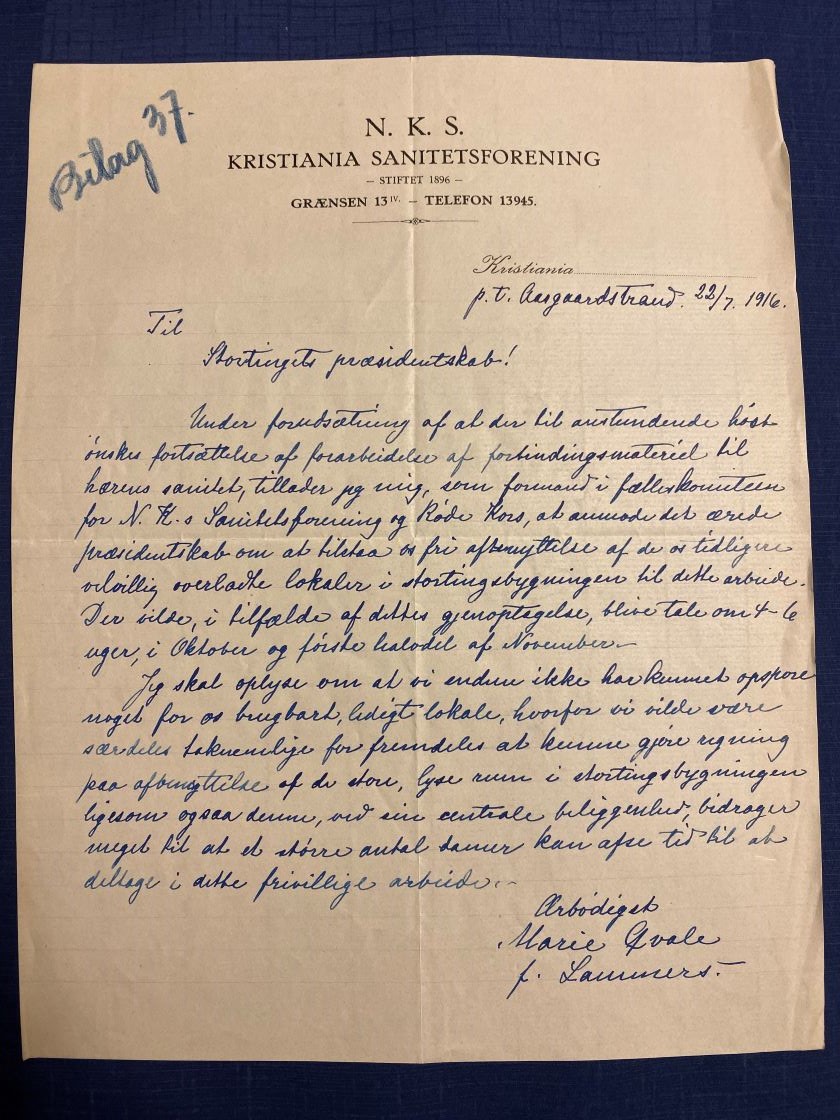 Bilag 37.
N. K. S.
KRISTIANIA SANITETSFORENING
– STIFTET 1896 –
GRÆNSEN 13 IV. – TELEFON 13945.
Kristiania
p. t. Aasgaardstrand. 22/7. 1916.
Til
Stortingets præsidentskab!
Under forudsætning af at der til anstundende høst
ønskes fortsættelse af forarbeidelse af forbindingsmateriel til
hærens sanitet, tillader jeg mig, som formand i fælleskomiteen
for N. K.s Sanitetsforening og Røde Kors, at anmode det ærede
præsidentskab om at tilstaa os fri afbenyttelse af de os tidligere
velvillig overladte lokaler i stortingsbygningen til dette arbeide.
Der vilde, i tilfælde af dettes gjenoptagelse, blive tale om 4-6
uger, i Oktober og første halvdel af November.
Jeg skal oplyse om at vi endnu ikke har kunnet opspore
noget for os brugbart, ledigt lokale, hvorfor vi vilde være
særdeles taknemlige for fremdeles at kunne gjøre regning
paa afbenyttelse af de store, lyse rum i stortingsbygningen
ligesom ogsaa denne, ved sin centrale beliggenhed, bidrager
meget til at et større antal damer kan afse tid til at
deltage i dette frivillige arbeide.
Ærbødigst
Marie Qvale
f. Lammers.